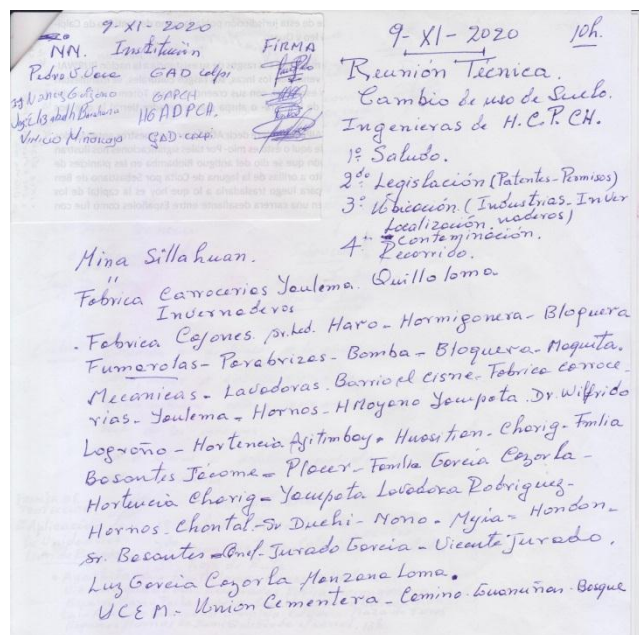 9-XI-2020
NN. Institución FIRMA
Pedro V. Vaca GAD calpi
GAPCH
HGADPCH.
Vinicio Miñarcaja GAD-calpi
9-XI-2020 10h.
Reunión Técnica.
Cambio de uso de Suelo.
Ingenieras de H.C.P.CH.
1º Saludo.
2do Legislación (Patentes-Permisos)
3º Ubicación (Industrias-Inver
Localización, naderos)
4to Contaminación.
Recorrido.
Mina Sillahuan.
"
Fabrica Carrocerias Yaulema. Quilloloma
Invernaderos
. Fabrica Cajones. Sr. Led. Haro - Hormigonera - Bloquera
Fumarolas - Parabrizas - Bomba - Bloquera - Maquita.
Mecanicas - Lavadoras. Barrio el cisne. Fabrica carroce-
rias - Yaulema - Hornos - H Moyano Yampota. Dr. Wilfrido
Logroño - Hortencia Ajitimbay - Huasitian. Charig - Fmlia
Basantes Jácome = Placer - Familia Garcia Cazorla -
Hortencia Charig = Yaupota Lavadora Rodriguez -
Hornos. Chontal - Sr Duchi - Nono - Mejia = Hondon -
Sr. Basantes = Cnel - Jurado Garcia - Vicente Jurado.
Luz Garcia Cazorla Manzana Loma.
UCEM - Union Cementera - Camino Guanuñan - Bosque